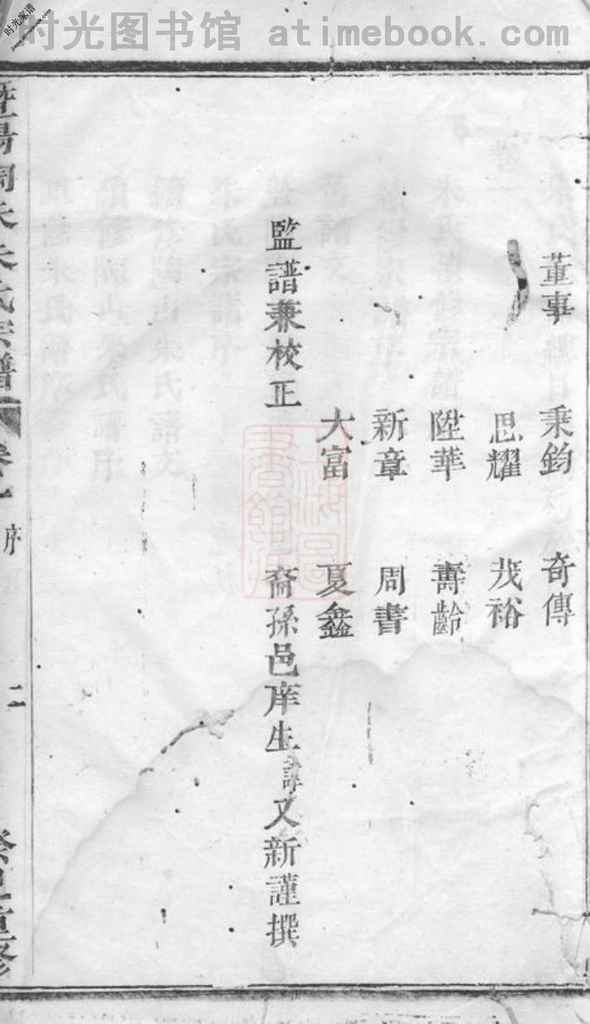 时光图书馆 atimebook.com
董事 秉鈞 奇傳
思耀 茂裕
陞華 壽齡
新章 周書
大富 夏鑫
監譜兼校正 裔孫邑庠生諱又新謹撰
朱氏宗譜 卷一 序 二